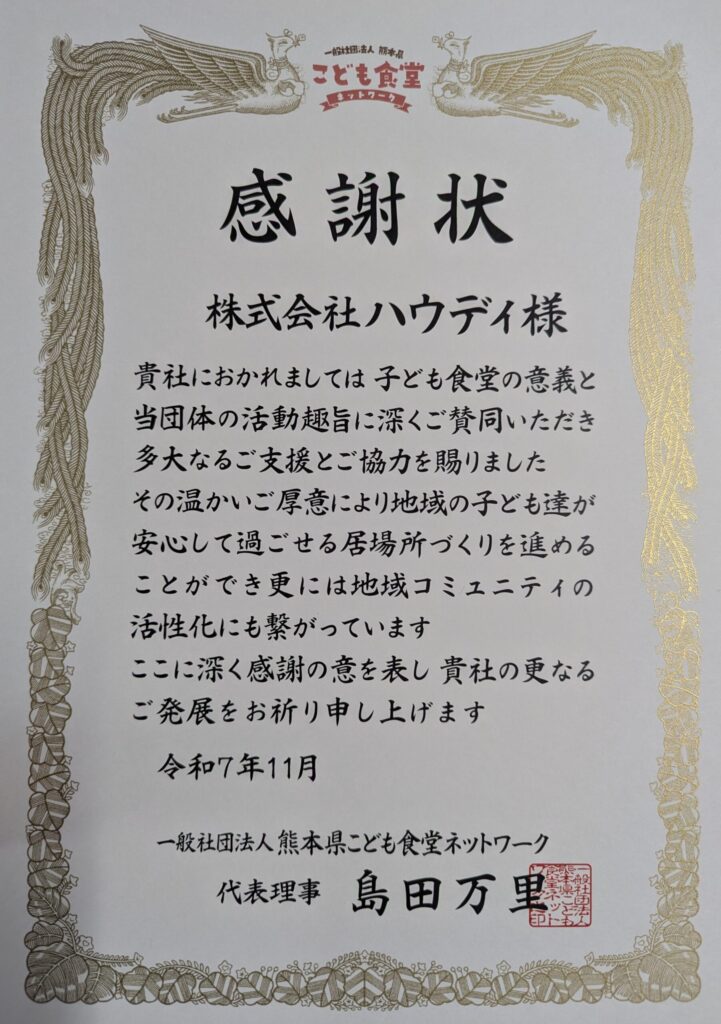 一般社団法人 熊本県
こども食堂
ネットワーク
感謝状
株式会社ハウディ様
貴社におかれましては 子ども食堂の意義と
当団体の活動趣旨に深くご賛同いただき
多大なるご支援とご協力を賜りました
その温かいご厚意により地域の子ども達が
安心して過ごせる居場所づくりを進める
ことができ更には地域コミュニティの
活性化にも繋がっています
ここに深く感謝の意を表し 貴社の更なる
ご発展をお祈り申し上げます
令和7年11月
一般社団法人 熊本県こども食堂ネットワーク
代表理事 島田万里
一般社団法人
熊本県こども
食堂ネット
ワーク印